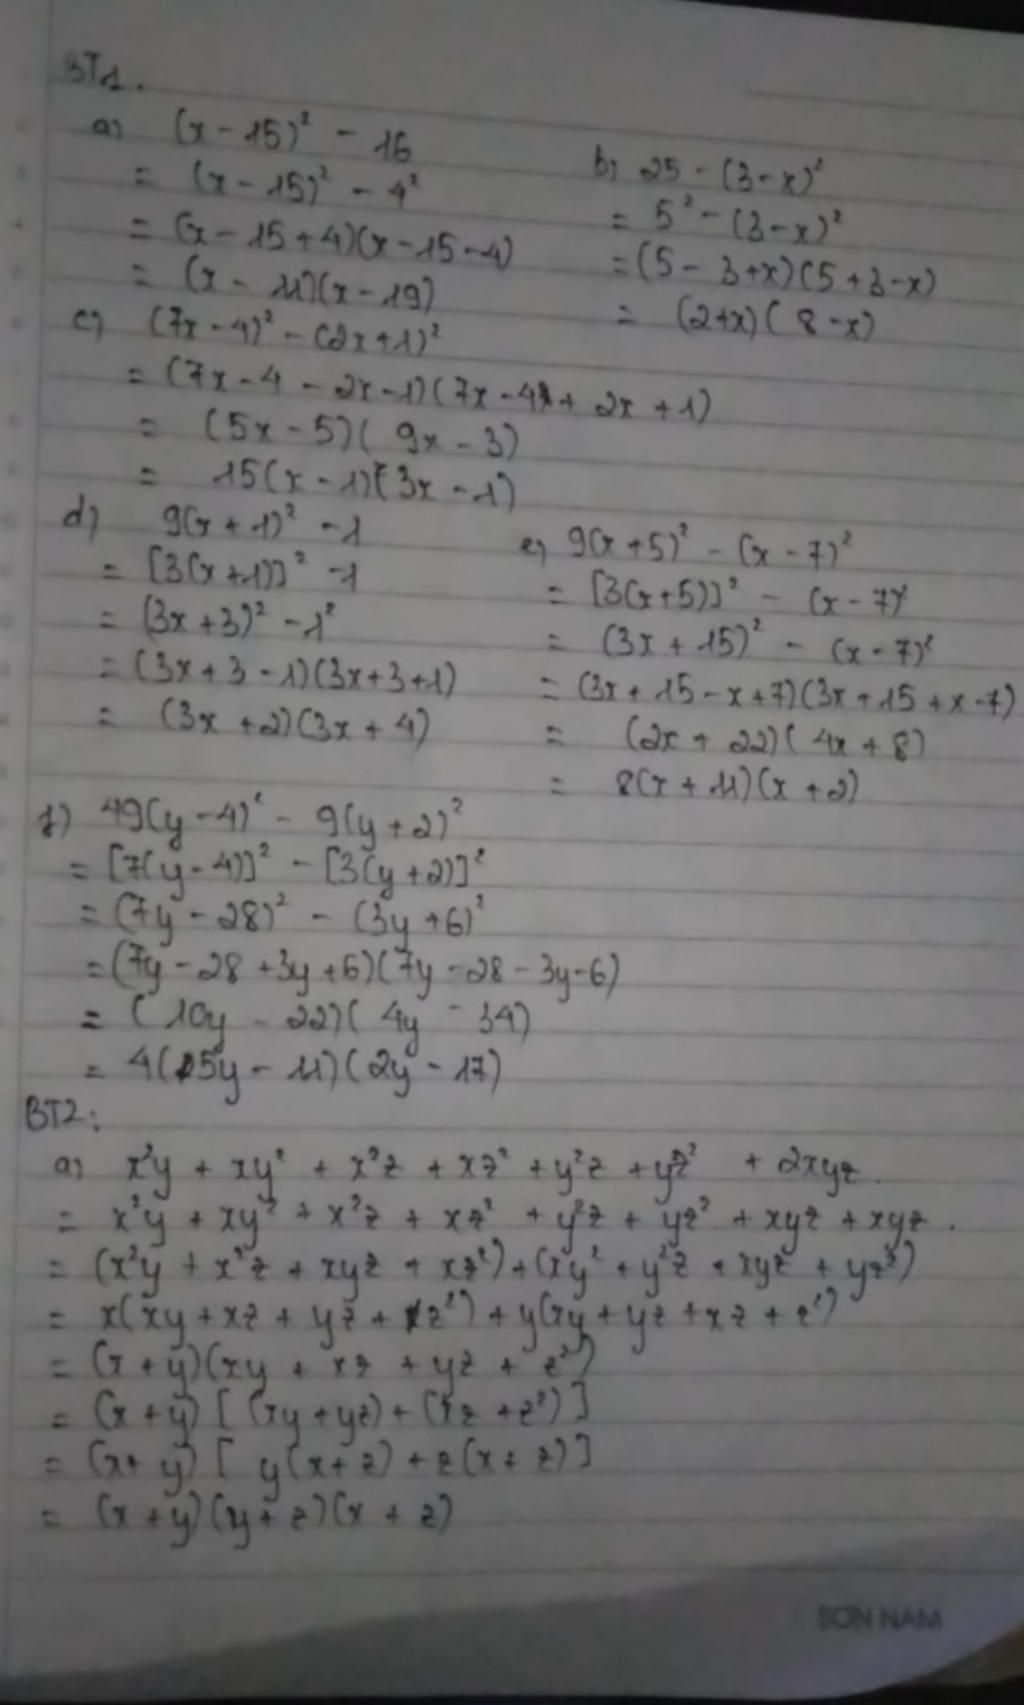 BT1.
a) (x - 15)² - 16
= (x - 15)² - 4²
= (x - 15 + 4)(x - 15 - 4)
= (x - 11)(x - 19)
b) 25 - (3 - x)²
= 5² - (3 - x)²
= (5 - 3 + x)(5 + 3 - x)
= (2 + x)(8 - x)
c) (7x - 4)² - (2x + 1)²
= (7x - 4 - 2x - 1)(7x - 4 + 2x + 1)
= (5x - 5)(9x - 3)
= 15(x - 1)(3x - 1)
d) 9(x + 1)² - 1
= [3(x + 1)]² - 1
= (3x + 3)² - 1²
= (3x + 3 - 1)(3x + 3 + 1)
= (3x + 2)(3x + 4)
e) 9(x + 5)² - (x - 7)²
= [3(x + 5)]² - (x - 7)²
= (3x + 15)² - (x - 7)²
= (3x + 15 - x + 7)(3x + 15 + x - 7)
= (2x + 22)(4x + 8)
= 8(x + 11)(x + 2)
f) 49(y - 4)² - 9(y + 2)²
= [7(y - 4)]² - [3(y + 2)]²
= (7y - 28)² - (3y + 6)²
= (7y - 28 + 3y + 6)(7y - 28 - 3y - 6)
= (10y - 22)(4y - 34)
= 4(5y - 11)(2y - 17)
BT2:
a) x²y + xy² + x²z + xz² + y²z + yz² + 2xyz.
= x²y + xy² + x²z + xz² + y²z + yz² + xyz + xyz.
= (x²y + x²z + xyz + xz²) + (xy² + y²z + xyz + yz²)
= x(xy + xz + yz + z²) + y(xy + yz + xz + z²)
= (x + y)(xy + xz + yz + z²)
= (x + y) [(xy + yz) + (xz + z²)]
= (x + y) [y(x + z) + z(x + z)]
= (x + y)(y + z)(x + z)
SON NAM